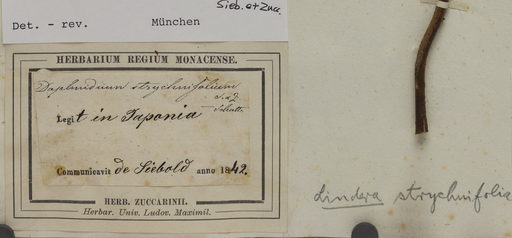 Sieb. et Zucc.
Det. - rev. München
HERBARIUM REGIUM MONACENSE.
Daphnidium strychnifolium
S. & Z.
Legit in Japonia
Communicavit de Siebold anno 1842.
HERB. ZUCCARINII.
Herbar. Univ. Ludov. Maximil.
Lindera strychnifolia